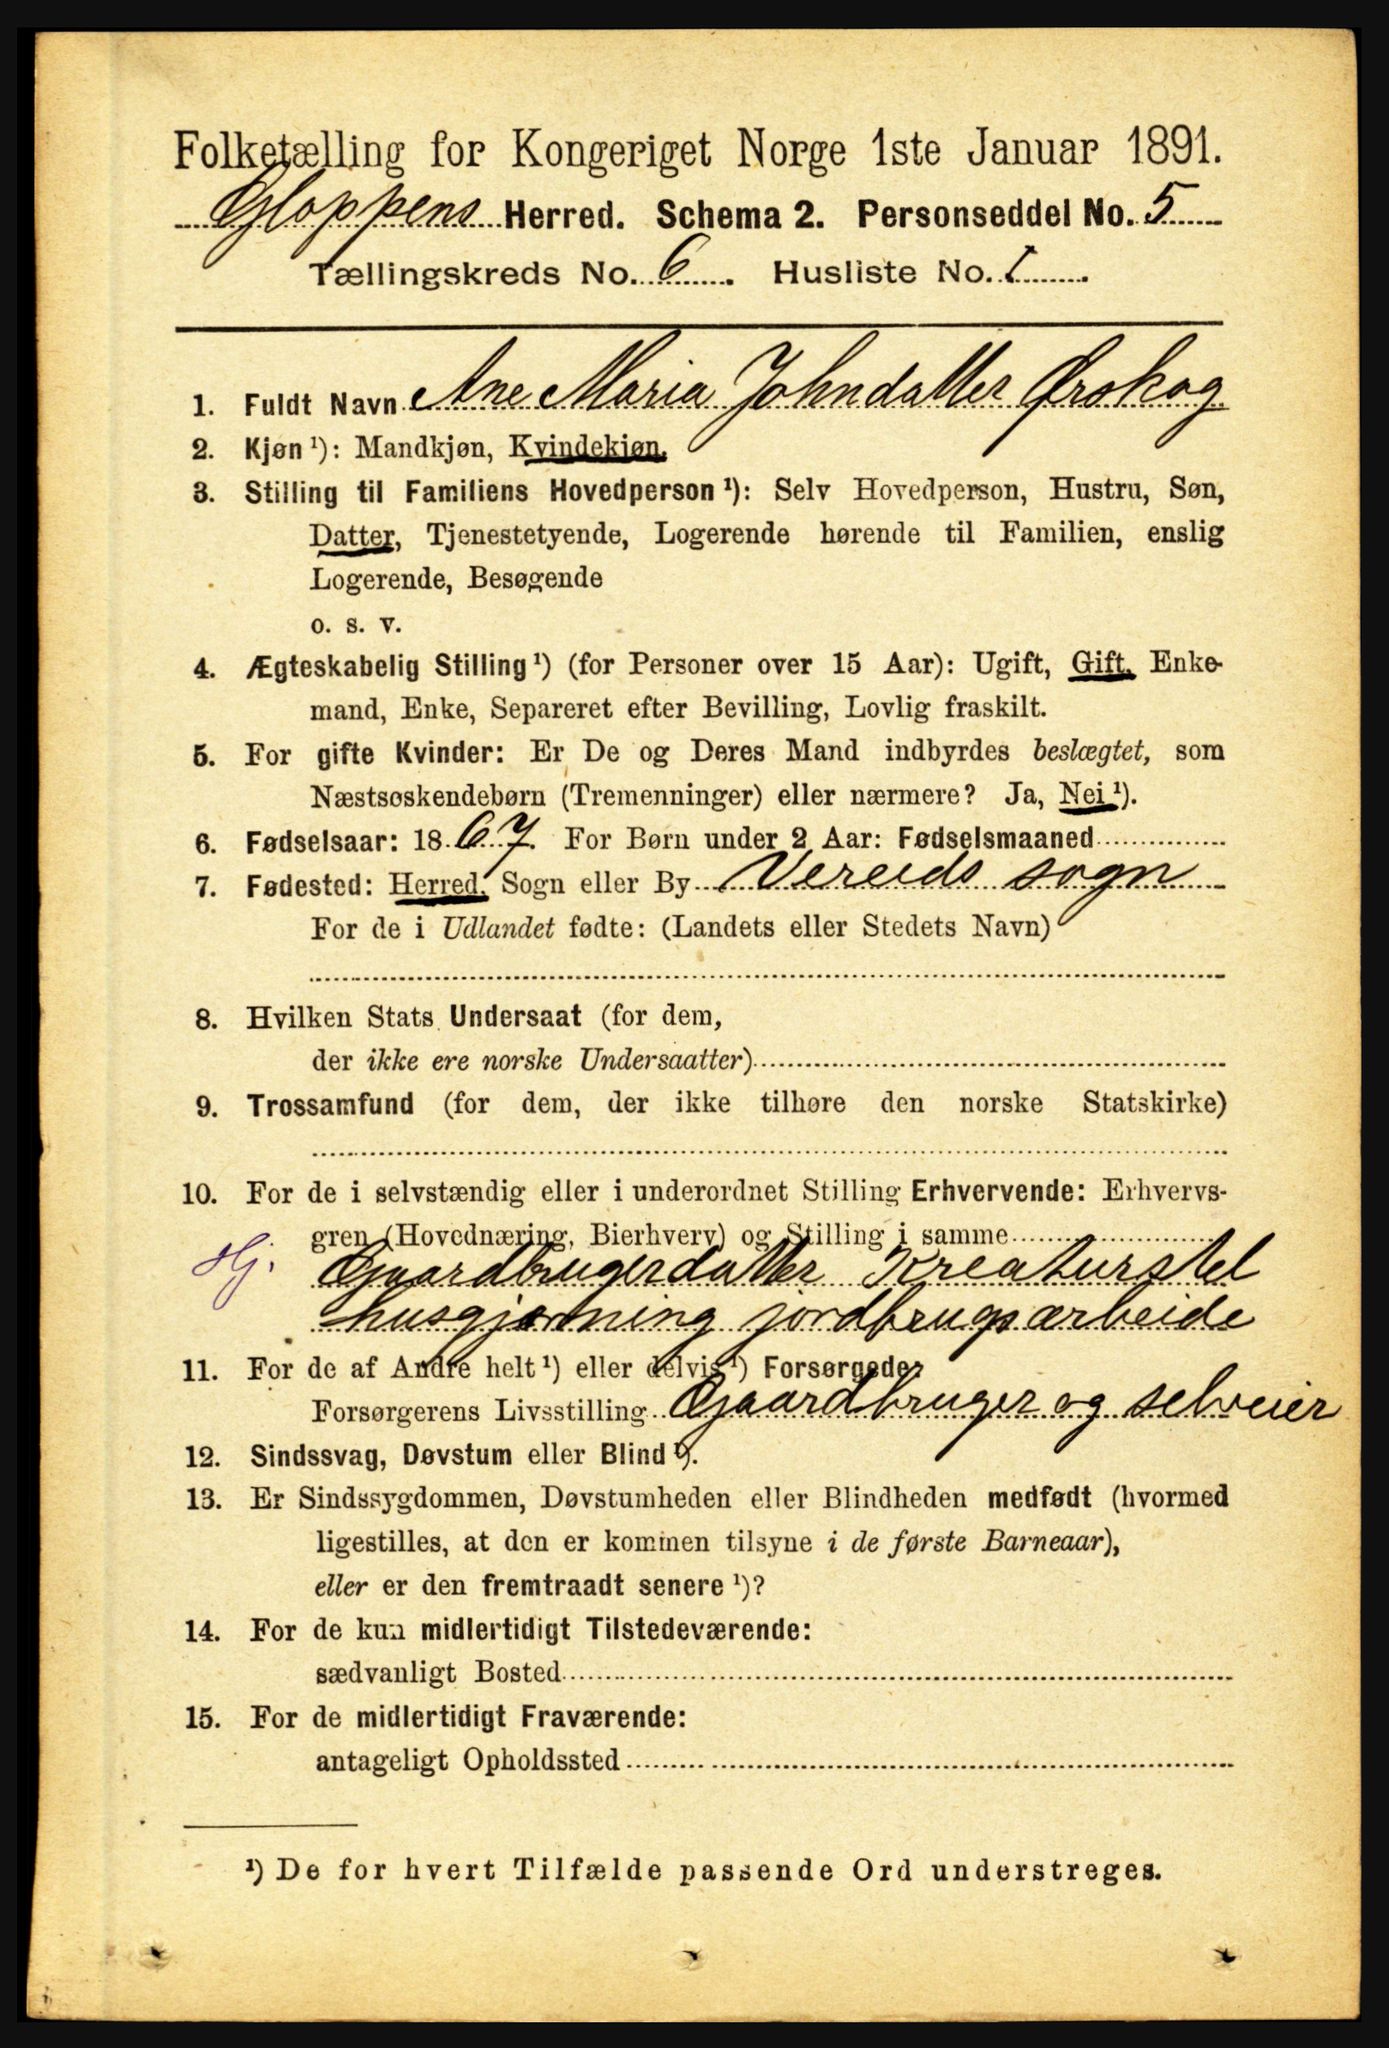 Folketælling for Kongeriget Norge 1ste Januar 1891.
Gloppens Herred. Schema 2. Personseddel No. 5
Tællingskreds No. 6. Husliste No. 1
1. Fuldt Navn Ane Maria Johndatter Ørskog
2. Kjøn ¹): Mandkjøn, Kvindekjøn.
3. Stilling til Familiens Hovedperson ¹): Selv Hovedperson, Hustru, Søn,
Datter, Tjenestetyende, Logerende hørende til Familien, enslig
Logerende, Besøgende
o. s. v.
4. Ægteskabelig Stilling ¹) (for Personer over 15 Aar): Ugift, Gift, Enke-
mand, Enke, Separeret efter Bevilling, Lovlig fraskilt.
5. For gifte Kvinder: Er De og Deres Mand indbyrdes beslægtet, som
Næstsøskendebørn (Tremenninger) eller nærmere? Ja, Nei ¹).
6. Fødselsaar: 1867. For Børn under 2 Aar: Fødselsmaaned
7. Fødested: Herred, Sogn eller By Vereids sogn
For de i Udlandet fødte: (Landets eller Stedets Navn)
8. Hvilken Stats Undersaat (for dem,
der ikke ere norske Undersaatter)
9. Trossamfund (for dem, der ikke tilhøre den norske Statskirke)
10. For de i selvstændig eller i underordnet Stilling Erhvervende: Erhvervs-
gren (Hovednæring, Bierhverv) og Stilling i samme
Hj. Gaardbrugerdatter Kreaturstel
husgjørning jordbrugsarbeide
11. For de af Andre helt ¹) eller delvis ¹) Forsørgede:
Forsørgerens Livsstilling Gaardbruger og selveier
12. Sindssvag, Døvstum eller Blind ¹).
13. Er Sindssygdommen, Døvstumheden eller Blindheden medfødt (hvormed
ligestilles, at den er kommen tilsyne i de første Barneaar),
eller er den fremtraadt senere ¹)?
14. For de kun midlertidigt Tilstedeværende:
sædvanligt Bosted
15. For de midlertidigt Fraværende:
antageligt Opholdssted
¹) De for hvert Tilfælde passende Ord understreges.